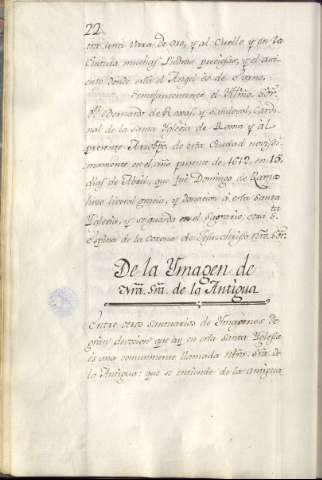 22
por unci Vara de oro, y al Cuello y en la
Cintura muchas Piedras preciosas, y el asi-
ento donde está el Angel es de
el Yllmo. Sor.
Dn. Bernardo de Roxas, y Sandoval, Cardi-
nal de la Santa Yglesia de Roma y al
presente Arzobpo. de esta Ciudad novissi-
mamente en el año passado de 1612. en 16.
dias de Abril, que fué Domingo de Ramos
hizo liveral gracia, y donacion á esta Santa
Yglesia, y se guarda en el Sagrario, otra Sta.
Espina de la Corona de Jesuchristo nro. Sor.
De la Ymagen de
Nra. Sra. de la Antigua
Entre otros santuarios de Ymagenes de
gran devocion que ay en esta Santa Yglesia
es una comunmente llamada Ntra. Sra. de
la Antigua: que se entiende de la antigua